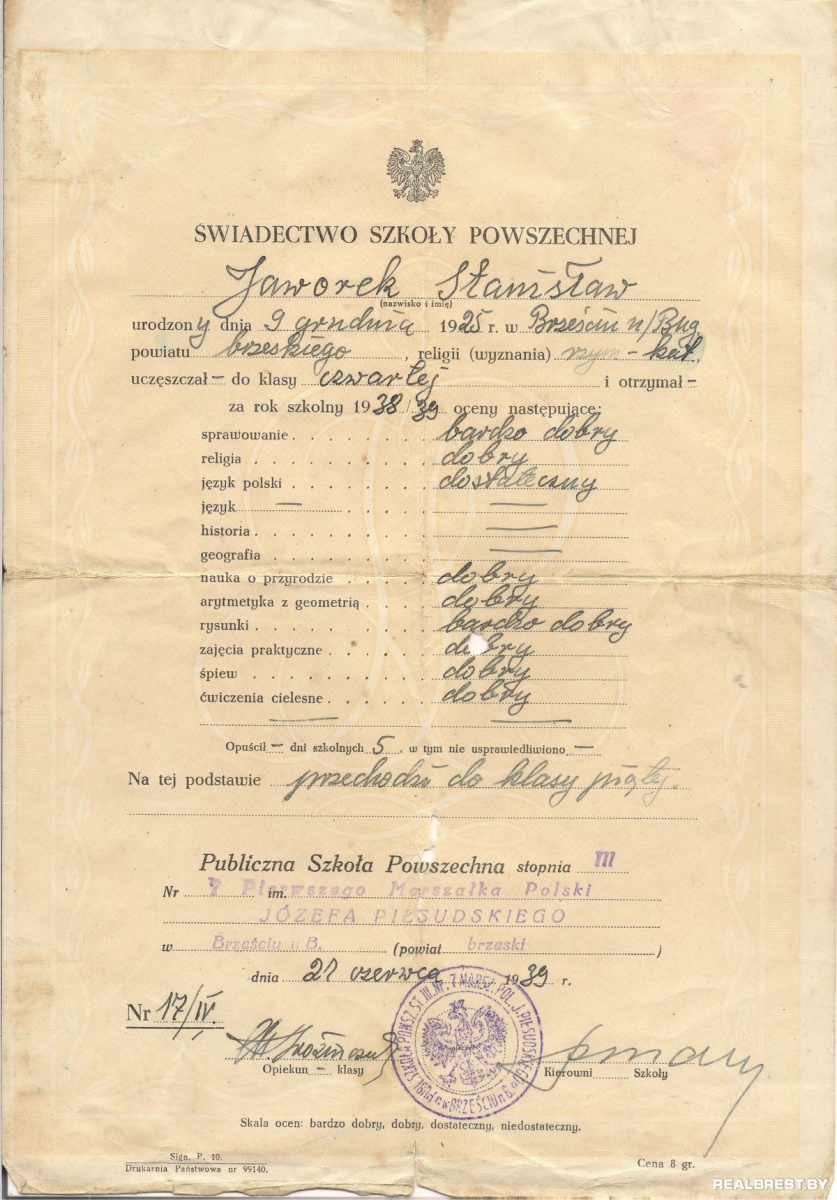 ŚWIADECTWO SZKOŁY POWSZECHNEJ
Jaworek Stanisław
(nazwisko i imię)
urodzony dnia 9 grudnia 1925 r. w Brześciu n/Bug.
powiatu brzeskiego, religii (wyznania) rzym-kat.
uczęszczał – do klasy czwartej i otrzymał –
za rok szkolny 1938/39 oceny następujące:
sprawowanie . . . . . . bardzo dobry
religia . . . . . . . dobry
język polski . . . . . . dostateczny
język — . . . . —
historia . . . . . . . —
geografia . . . . . . . —
nauka o przyrodzie . . . . dobry
arytmetyka z geometrią . . . dobry
rysunki . . . . . . . bardzo dobry
zajęcia praktyczne . . . . . dobry
śpiew . . . . . . . dobry
ćwiczenia cielesne . . . . . dobry
— —
Opuścił – dni szkolnych 5, w tym nie usprawiedliwiono –
Na tej podstawie przechodzi do klasy piątej.
Publiczna Szkoła Powszechna stopnia III
Nr 7 im. Pierwszego Marszałka Polski
JÓZEFA PIŁSUDSKIEGO
w Brześciu n B. (powiat brzeski)
dnia 21 czerwca 1939 r.
Nr 17/IV.
PUBL. SZKOŁA POWSZ. ST. III. NR. 7 MARSZ. POL. J. PIŁSUDSKIEGO w BRZEŚCIU n B.
Opiekun – klasy Kierowni Szkoły
Skala ocen: bardzo dobry, dobry, dostateczny, niedostateczny.
Sign. P. 10.
Drukarnia Państwowa nr 99140.
Cena 8 gr.
REALBREST.BY